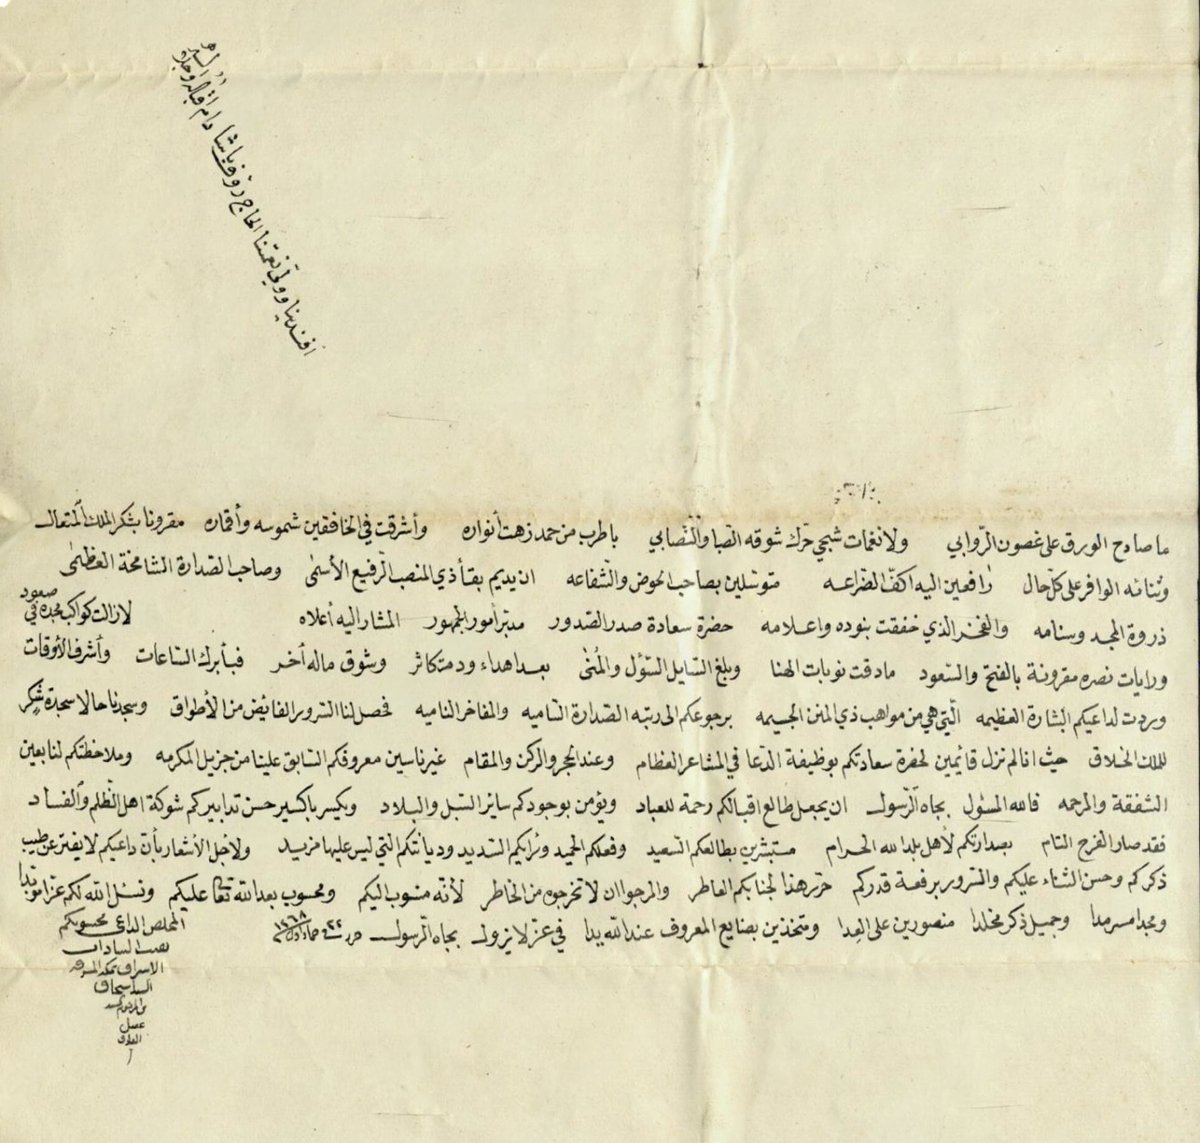 افندينا وولي نعمتنا الحاج رؤف باشا دام اقباله
ما صادح الورق على غصون الروابي ولا نغمات شجي حرك شوقه الصبا والتصابي باطرب من حمد زهت أنواره وأشرقت في الخافقين شموسه وأقماره مقرونا بشكر الملك المتعال
وثنائه الوافر على كل حال رافعين اليه اكف الضراعه متوسلين بصاحب الحوض والشفاعه ان يديم بقا ذي المنصب الرفيع الأسمى وصاحب الصدارة الشامخة العظمى
ذروة المجد وسنامه والفخر الذي خفقت بنوده واعلامه حضرة سعادة صدر الصدور مدبر أمور الجمهور المشار اليه أعلاه لازالت كواكب مجده في صعود
ورايات نصره مقرونة بالفتح والسعود ما دقت نوبات الهنا وبلغ السايل السؤل والمنى بعد اهداء ود متكاثر وشوق ماله أخر فبأبرك الساعات وأشرف الأوقات
وردت لداعيكم البشارة العظيمه التي هي من مواهب ذي المنن الجسيمه برجوعكم الى رتبه الصدارة الساميه والمفاخر الناميه فحصل لنا السرور الفائض من الأطواق وسجدنا حالا سجدة شكر
للملك الخلاق حيث انا لم نزل قائمين لحضرة سعادتكم بوظيفة الدعا في المشاعر العظام وعند الحجر والركن والمقام غير ناسين معروفكم السابق علينا من جزيل المكرمه وملاحظتكم لنا بعين
الشفقة والمرحمه فالله المسئول بجاه الرسول ان يجعل طالع اقبالكم رحمة للعباد ويؤمن بوجودكم سائر السبل والبلاد ويكسر باكسير حسن تدابيركم شوكة اهل الظلم والفساد
فقد صار الفرح التام بصدارتكم لأهل بلد الله الحرام مستبشرين بطالعكم السعيد وفعلكم الحميد ورأيكم السديد وديانتكم التي ليس عليها مزيد ولاجل الأشعار بأن داعيكم لا يفتر عن طيب
ذكركم وحسن الثناء عليكم والسرور برفعة قدركم حرر هذا لجنابكم العاطر والمرجو ان لا تخرجوه من الخاطر لأنه منسوب اليكم ومحسوب بعد الله تعالى عليكم ونسئل الله لكم عزا مؤبدا
ومجدا سرمدا وجميل ذكر مخلدا منصورين على العدا ومتخذين بصنايع المعروف عند الله يدا في عز لا يزول بجاه الرسول حرر في ٢٢ جماد اول ١٢٦٨
المخلص الداعي محسوبكم
نقيب السادات
الاشراف بمكة المشرفه
السيد اسحاق
بن المرحوم السيد
عقيل
العلوي